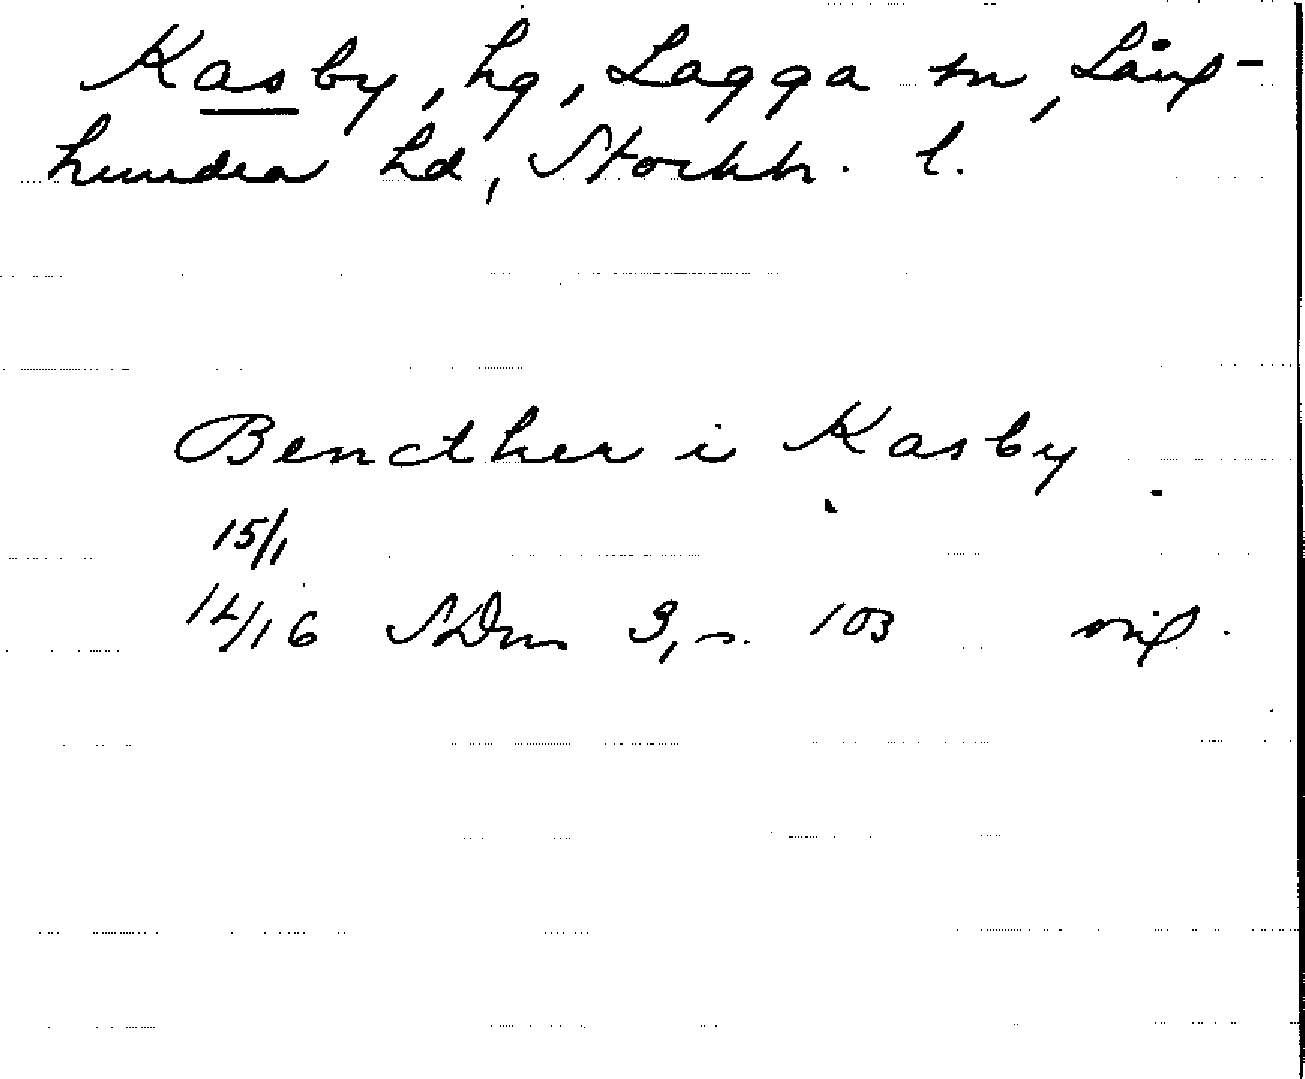 Kasby, hg, Lagga sn, Lång-
hundra hd, Stockh. l.
Bencther i Kasby
15/1
14/16 SDns 3, s. 103 orig.